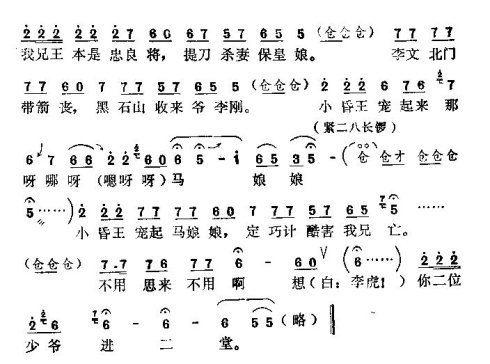 2 2 2 2 2 2 7 6 0 6 7 5 7 6 5 5 (仓仓仓) 7 7 7 7
我兄王 本是忠良将，提刀杀妻保皇娘。 李文北门
7 7 6 0 7 7 7 7 5 7 6 5 5 (仓仓仓) 2 2 2 6 7 6 7
带箭丧，黑石山收来爷李刚。 小昏王宠起来那
(紧二八长锣)
6 7 6 6 2 2 6 0 6 5 - i 6 5 3 5 - (仓 仓才 仓仓仓
呀哪呀(嗯呀呀)马 娘 娘
5 ……) 2 2 2 7 7 7 7 6 0 7 7 7 5 7 6 5 5 ……
小昏王宠起马娘娘，定巧计酷害我兄亡。
(仓仓仓) 7·7 7 6 7 7 6 - 6 0 V (6 ……) 2 2 2
不用恩来不用啊 想(白：李虎！)你二位
2 6 6 - 6 - 6 5 5 (略)
少爷 进 二 堂。